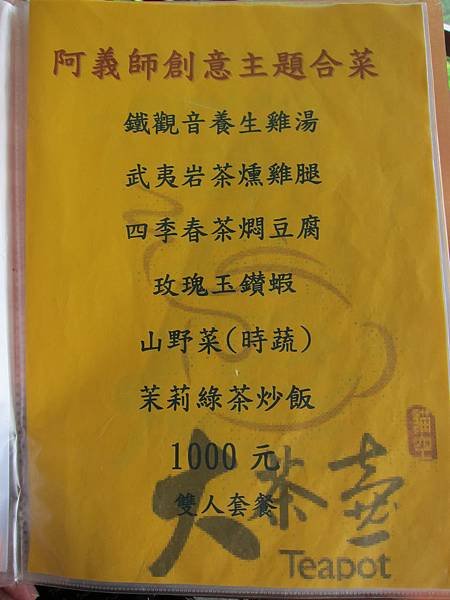 阿義師創意主題合菜
鐵觀音養生雞湯
武夷岩茶燻雞腿
四季春茶燜豆腐
玫瑰玉鑽蝦
山野菜(時蔬)
茉莉綠茶炒飯
1000 元
雙人套餐
貓空
大茶壺
Teapot